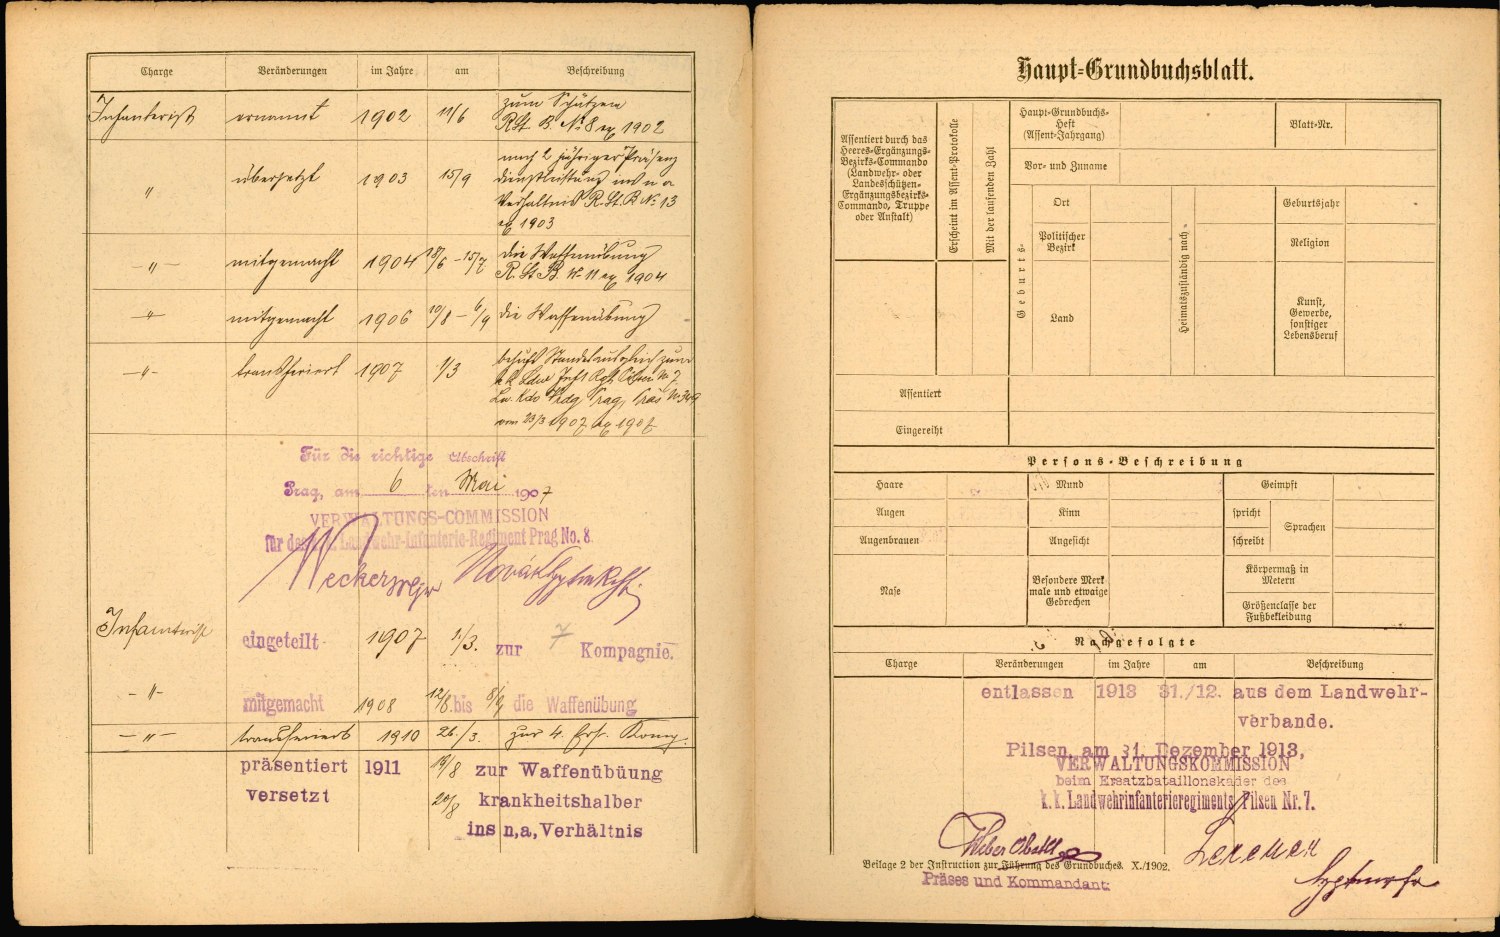 Charge Veränderungen im Jahre am Beschreibung
Infanterist ernannt 1902 11/6 zum Schützen
R.St. B. No 8 ex 1902
" übersetzt 1903 15/9 nach 2 jähriger Präsenz
dienstleistung ins n a
Verhältnis R. St. B No 13
ex 1903
—"— mitgemacht 1904 18/6 – 15/7 die Waffenübung
R. St. B. No 11 ex 1904
—"— mitgemacht 1906 10/8 – 6/9 die Waffenübung
—"— transferiert 1907 1/3 behufs Standesausgleich zum
k.k. Ldw Inft Rgt Pilsen No 7
Prag, Präs No 349
vom 23/3 1907 ex 1907
Für die richtige Abschrift
Prag, am 6 ten Mai 1907
VERWALTUNGS-COMMISSION
für das k.k. Landwehr-Infanterie-Regiment Prag No. 8.
Novák
Infanterist eingeteilt 1907 1./3. zur 7 Kompagnie.
—"— mitgemacht 1908 12/8. bis 8/9 die Waffenübung
—"— transferiert 1910 26./3. zur 4. Ers. Komp.
präsentiert 1911 19/8 zur Waffenübüung
versetzt 20/8 krankheitshalber
ins n,a, Verhältnis
Haupt-Grundbuchsblatt.
Assentiert durch das
Heeres-Ergänzungs-
Bezirks-Commando
(Landwehr- oder
Landesschützen-
Ergänzungsbezirks-
Commando, Truppe
oder Anstalt)
Erscheint im Assent-Protokolle
Mit der laufenden Zahl
Haupt-Grundbuchs-
Heft
(Assent-Jahrgang)
Blatt-Nr.
Vor- und Zuname
Geburts-
Ort
Politischer
Bezirk
Land
Heimatszuständig nach
Geburtsjahr
Religion
Kunst,
Gewerbe,
sonstiger
Lebensberuf
Assentiert
Eingereiht
Persons-Beschreibung
Haare Mund Geimpft
Augen Kinn spricht Sprachen
Augenbrauen Angesicht schreibt
Nase
Besondere Merk
male und etwaige
Gebrechen
Körpermaß in
Metern
Größenclasse der
Fußbekleidung
Nachgefolgte
Charge Veränderungen im Jahre am Beschreibung
entlassen 1913 31./12. aus dem Landwehr-
verbande.
Pilsen, am 31. Dezember 1913,
VERWALTUNGSKOMMISSION
beim Ersatzbataillonskader des
k.k. Landwehrinfanterieregiments Pilsen Nr. 7.
Weber Obstlt
Beilage 2 der Instruction zur Führung des Grundbuches. X./1902.
Präses und Kommandant